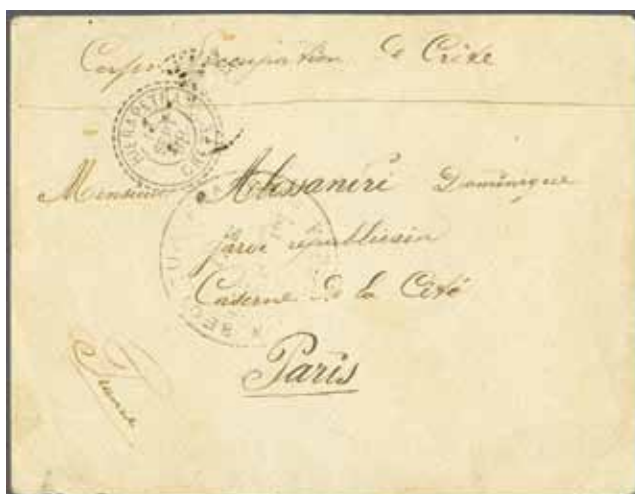 Corps d'occupation de Crète
HIERAPETRA
CRETE
Monsieur Alessandri Dominique
garde républicain
Caserne de la Cité
Paris
France